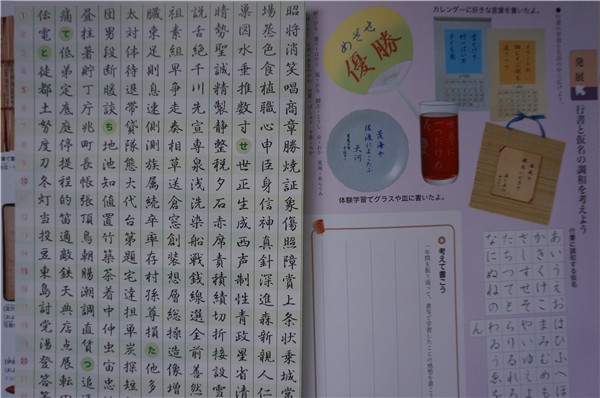 発展
行書と仮名の調和を考えよう
カレンダーに好きな言葉を書いたよ。
めざせ
優勝
荒海や
佐渡によこたふ
天河
体験学習でグラスや皿に書いたよ。
行書に調和する仮名
あいうえお
かきくけこ
さしすせそ
たちつてと
なにぬねの
はひふへほ
まみむめも
やいゆえよ
らりるれろ
わゐうゑを
ん
考えて書こう
一年間を振り返って、書写で学習したことの感想を書こう
昭将消笑唱商章勝焼証象傷照障賞上条状乗城常
場蒸色食植職心申臣身信神真針深進森新親人仁
巣図水垂推数寸せ世正生成西声制性青政星省清
晴勢聖誠精製静整税夕石赤席責積績切折接設雪
説舌絶千川先宣専泉浅洗染船戦銭線選全前善然
祖素組早争走奏相草送倉窓創装想層総操造像増
臓束足則息速側測族属続卒率存村孫尊損た他多
太対体待退帯貸隊態大代台第題宅達担単炭探短
団男段断暖談ち地池知値置竹築茶着中仲虫宙忠
昼柱著貯丁庁兆町長帳張頂鳥朝腸潮調直賃つ追
痛て低弟定底庭停提程的笛適敵鉄天典店点展転
伝電と徒都土努度刀冬灯当投豆東島討党湯登答